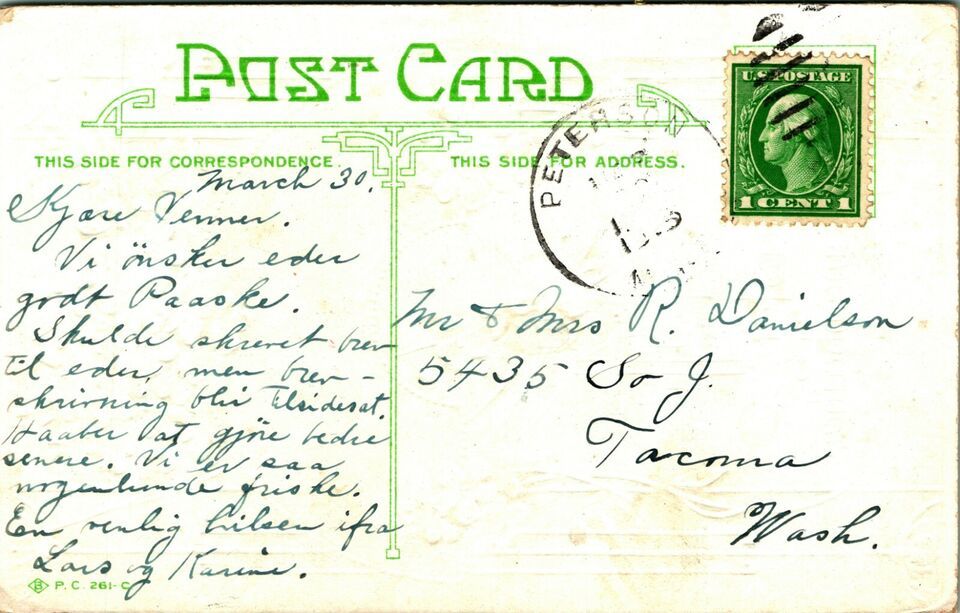 POST CARD
THIS SIDE FOR CORRESPONDENCE.
THIS SIDE FOR ADDRESS.
PETERSON
U.S. POSTAGE
1 CENT 1
March 30.
Kjære Venner.
Vi önsker eder
godt Paaske.
Skulde skrevet brev
til eder, men brev-
skrivning blir tilsidesat.
Haaber at gjöre bedre
senere. Vi er saa
nogenlunde friske.
En venlig hilsen ifra
Lars og Karine.
Mr & Mrs R. Danielson
5435 So J.
Tacoma
Wash.
B P.C. 261-C